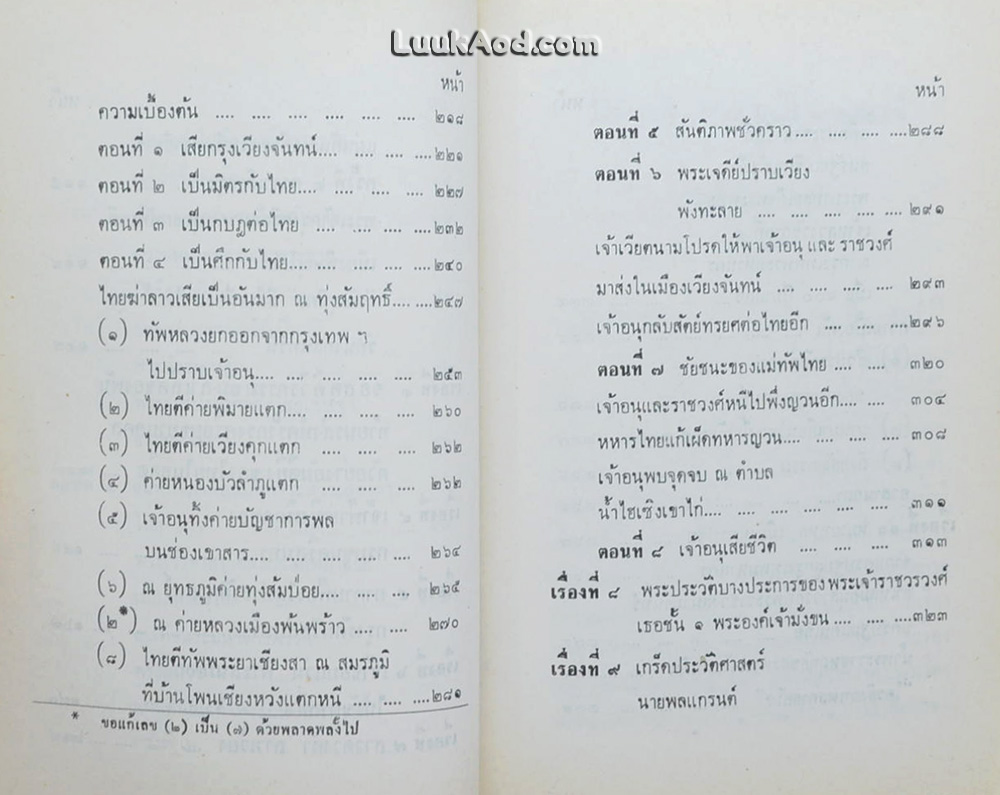 LuukAod.com
หน้า
ความเบื้องต้น .... .... .... .... .... .... ๒๑๘
ตอนที่ ๑ เสียกรุงเวียงจันทน์.... .... .... ....๒๒๑
ตอนที่ ๒ เป็นมิตรกับไทย.... .... .... ....๒๒๗
ตอนที่ ๓ เป็นกบฎต่อไทย .... .... .... ....๒๓๒
ตอนที่ ๔ เป็นศึกกับไทย.... .... .... .... ๒๔๐
ไทยฆ่าลาวเสียเป็นอันมาก ณ ทุ่งสัมฤทธิ์.... ....๒๔๗
(๑) ทัพหลวงยกออกจากกรุงเทพ ฯ
ไปปราบเจ้าอนุ.... .... .... .... .... ๒๕๓
(๒) ไทยตีค่ายพิมายแตก.... .... .... .... ๒๖๐
(๓) ไทยตีค่ายเวียงคุกแตก .... .... .... ๒๖๒
(๔) ค่ายหนองบัวลำภูแตก .... .... .... ๒๖๒
(๕) เจ้าอนุทิ้งค่ายบัญชาการพล
บนช่องเขาสาร.... .... .... .... ๒๖๔
(๖) ณ ยุทธภูมิค่ายทุ่งส้มป่อย.... .... .... ๒๖๕
(๒*) ณ ค่ายหลวงเมืองพันพร้าว .... .... ๒๗๐
(๘) ไทยตีทัพพระยาเชียงสา ณ สมรภูมิ
ที่บ้านโพนเชียงหวังแตกหนี .... .... ....๒๘๑
* ขอแก้เลข (๒) เป็น (๗) ด้วยพลาดพลั้งไป
หน้า
ตอนที่ ๕ สันติภาพชั่วคราว .... .... .... ....๒๘๘
ตอนที่ ๖ พระเจดีย์ปราบเวียง
พังทะลาย .... .... .... .... ....๒๙๑
เจ้าเวียตนามโปรดให้พาเจ้าอนุ และ ราชวงศ์
มาส่งในเมืองเวียงจันทน์ .... .... .... .... ๒๙๓
เจ้าอนุกลับสัตย์ทรยศต่อไทยอีก .... .... ....๒๙๖
ตอนที่ ๗ ชัยชนะของแม่ทัพไทย .... .... ๓๒๐
เจ้าอนุและราชวงศ์หนีไปพึ่งญวนอีก.... .... ๓๐๔
ทหารไทยแก้เผ็ดทหารญวน.... .... .... .... ๓๐๘
เจ้าอนุพบจุดจบ ณ ตำบล
น้ำไฮเชิงเขาไก่.... .... .... .... .... .... ๓๑๑
ตอนที่ ๘ เจ้าอนุเสียชีวิต .... .... .... ๓๑๓
เรื่องที่ ๘ พระประวัติบางประการของ พระเจ้าราชวรวงศ์
เธอชั้น ๑ พระองค์เจ้ามั่งขน.... .... ....๓๒๓
เรื่องที่ ๙ เกร็ดประวัติศาสตร์
นายพลแกรนต์